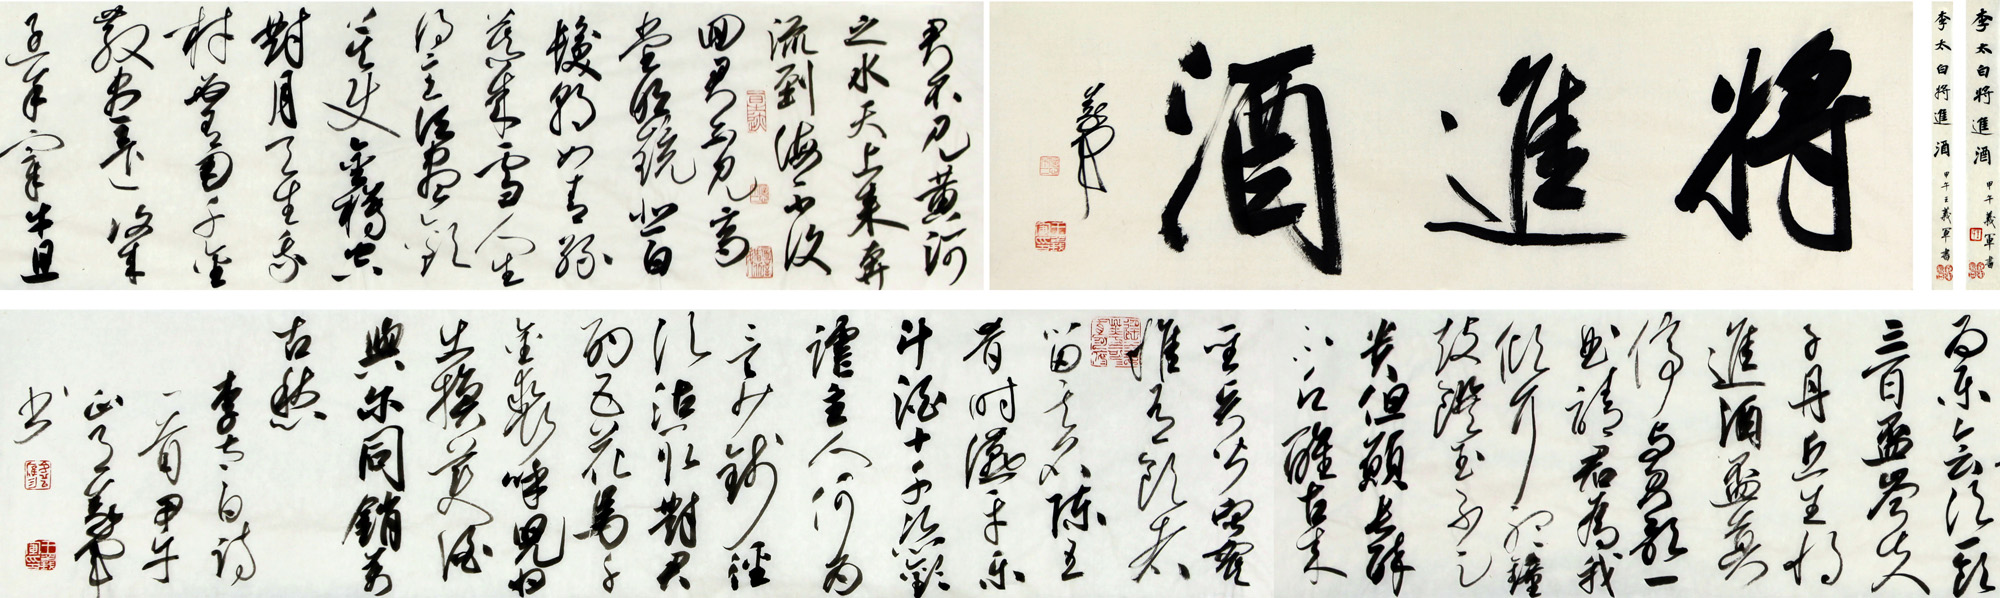 李太白將進酒 甲午義軍書
李太白將進酒 甲午王義軍書
將進酒
義軍
君不見黃河
之水天上來奔
流到海不復
回君不見高
堂明鏡悲白
髮朝如青絲
暮成雪人生
得意須盡歡
莫使金樽空
對月天生我
材必有用千金
散盡還復來
烹羊宰牛且
為樂會須一飲
三百盃岑夫
子丹丘生將
進酒盃莫
停與君歌一
曲請君為我
傾耳聽鐘
鼓饌玉不足
貴但願長醉
不願醒古來
聖賢皆寂寞
惟有飲者
留其名陳王
昔時宴平樂
斗酒十千恣歡
謔主人何為
言少錢徑
須沽取對君
酌五花馬千
金裘呼兒將
出換美酒
與爾同銷萬
古愁
李太白詩
一首甲午
正月義軍
書